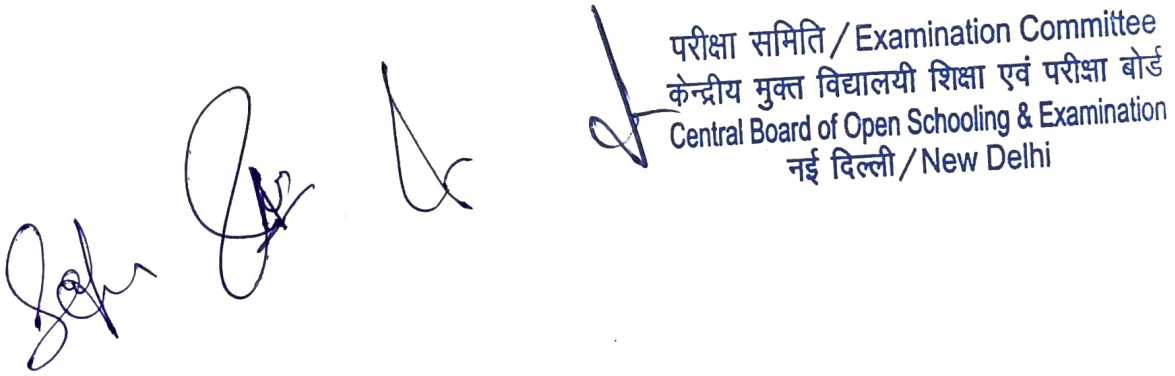 परीक्षा समिति / Examination Committee
केन्द्रीय मुक्त विद्यालयी शिक्षा एवं परीक्षा बोर्ड
Central Board of Open Schooling & Examination
नई दिल्ली / New Delhi